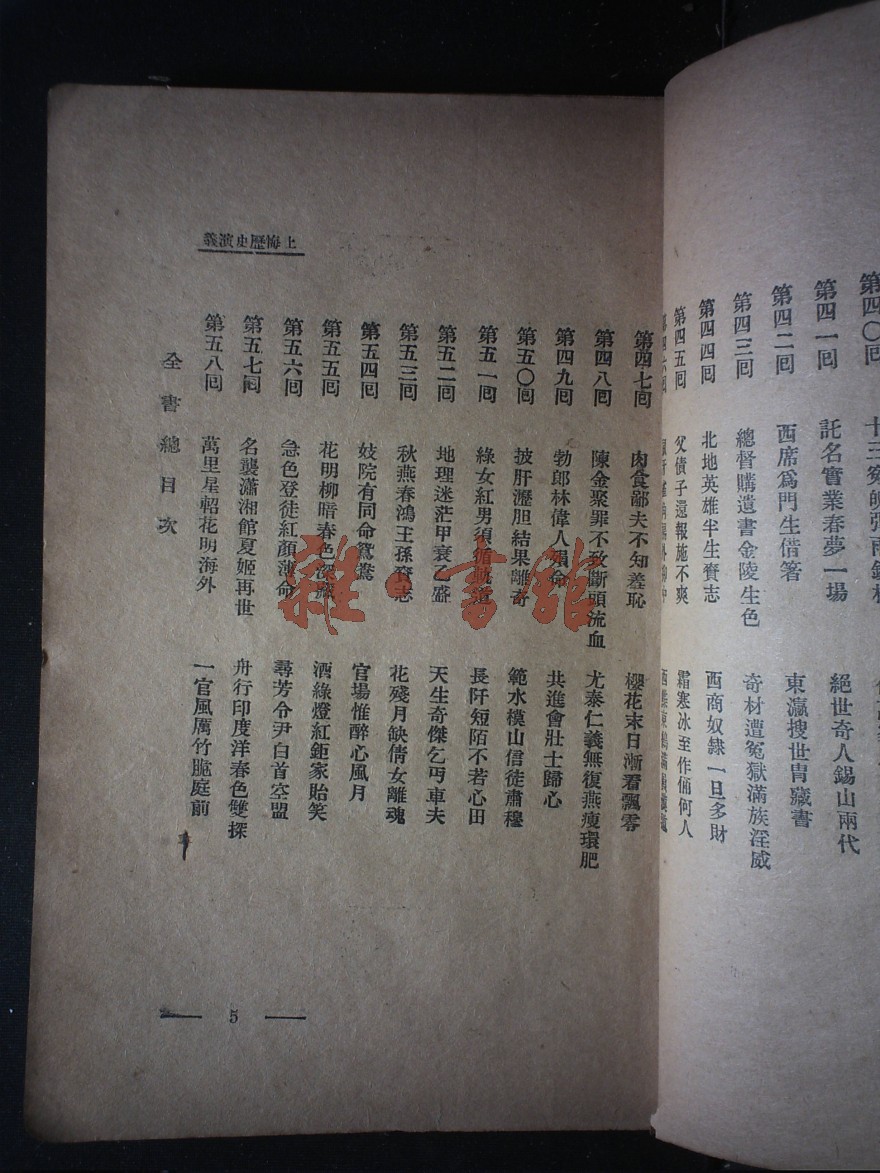 第四〇回
第四一回 託名實業春夢一場 絕世奇人錫山兩代
第四二回 西席爲門生借箸 東瀛搜世胄藏書
第四三回 總督購遺書金陵生色 奇材遭冤獄滿族淫威
第四四回 北地英雄半生賫志 西商奴隸一旦多財
第四五回 父債子還報施不爽 霜寒冰至作俑何人
上海歷史演義
第四七回 肉食鄙夫不知羞恥 櫻花末日漸看飄零
第四八回 陳金聚罪不致斷頭流血 尤泰仁義無復燕瘦環肥
第四九回 勃郎林偉人殞命 共進會壯士歸心
第五〇回 披肝瀝胆結果離奇 範水模山信徒肅穆
第五一回 綠女紅男須循軌道 長阡短陌不若心田
第五二回 地理迷茫甲衰乙盛 天生奇傑乞丐車夫
第五三回 秋燕春鴻王孫賫志 花殘月缺倩女離魂
第五四回 妓院有同命鴛鴦 官場惟醉心風月
第五五回 花明柳暗春色深藏 酒綠燈紅鉅家貽笑
第五六回 急色登徒紅顏薄命 尋芳令尹白首空盟
第五七回 名襲瀟湘館夏姬再世 舟行印度洋春色雙探
第五八回 萬里星軺花明海外 一官風厲竹脆庭前
全書總目次
5
雜·書館